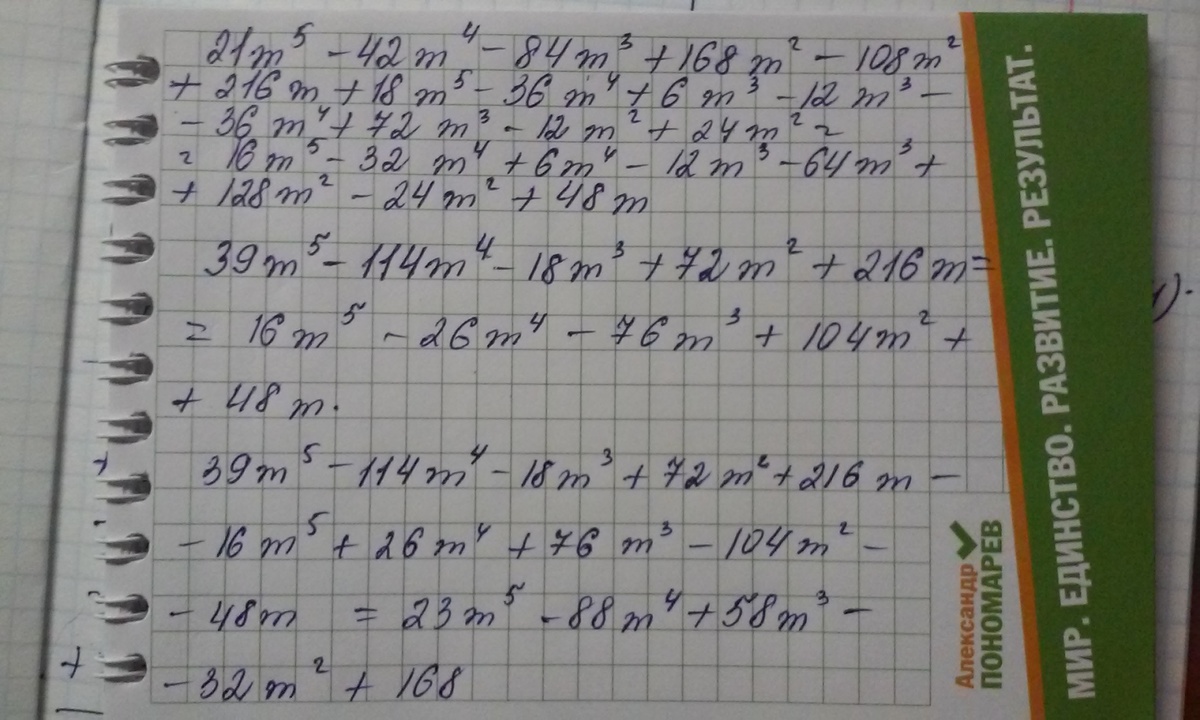 21m⁵ - 42m⁴ - 84m³ + 168m² - 108m²
+ 216m + 18m⁵ - 36m⁴ + 6m³ - 12m³ -
- 36m⁴ + 72m³ - 12m² + 24m² =
= 16m⁵ - 32m⁴ + 6m⁴ - 12m³ - 64m³ +
+ 128m² - 24m² + 48m
39m⁵ - 114m⁴ - 18m³ + 72m² + 216m =
= 16m⁵ - 26m⁴ - 76m³ + 104m² +
+ 48m.
39m⁵ - 114m⁴ - 18m³ + 72m² + 216m -
- 16m⁵ + 26m⁴ + 76m³ - 104m² -
- 48m = 23m⁵ - 88m⁴ + 58m³ -
- 32m² + 168
Александр
ПОНОМАРЕВ
МИР. ЕДИНСТВО. РАЗВИТИЕ. РЕЗУЛЬТАТ.